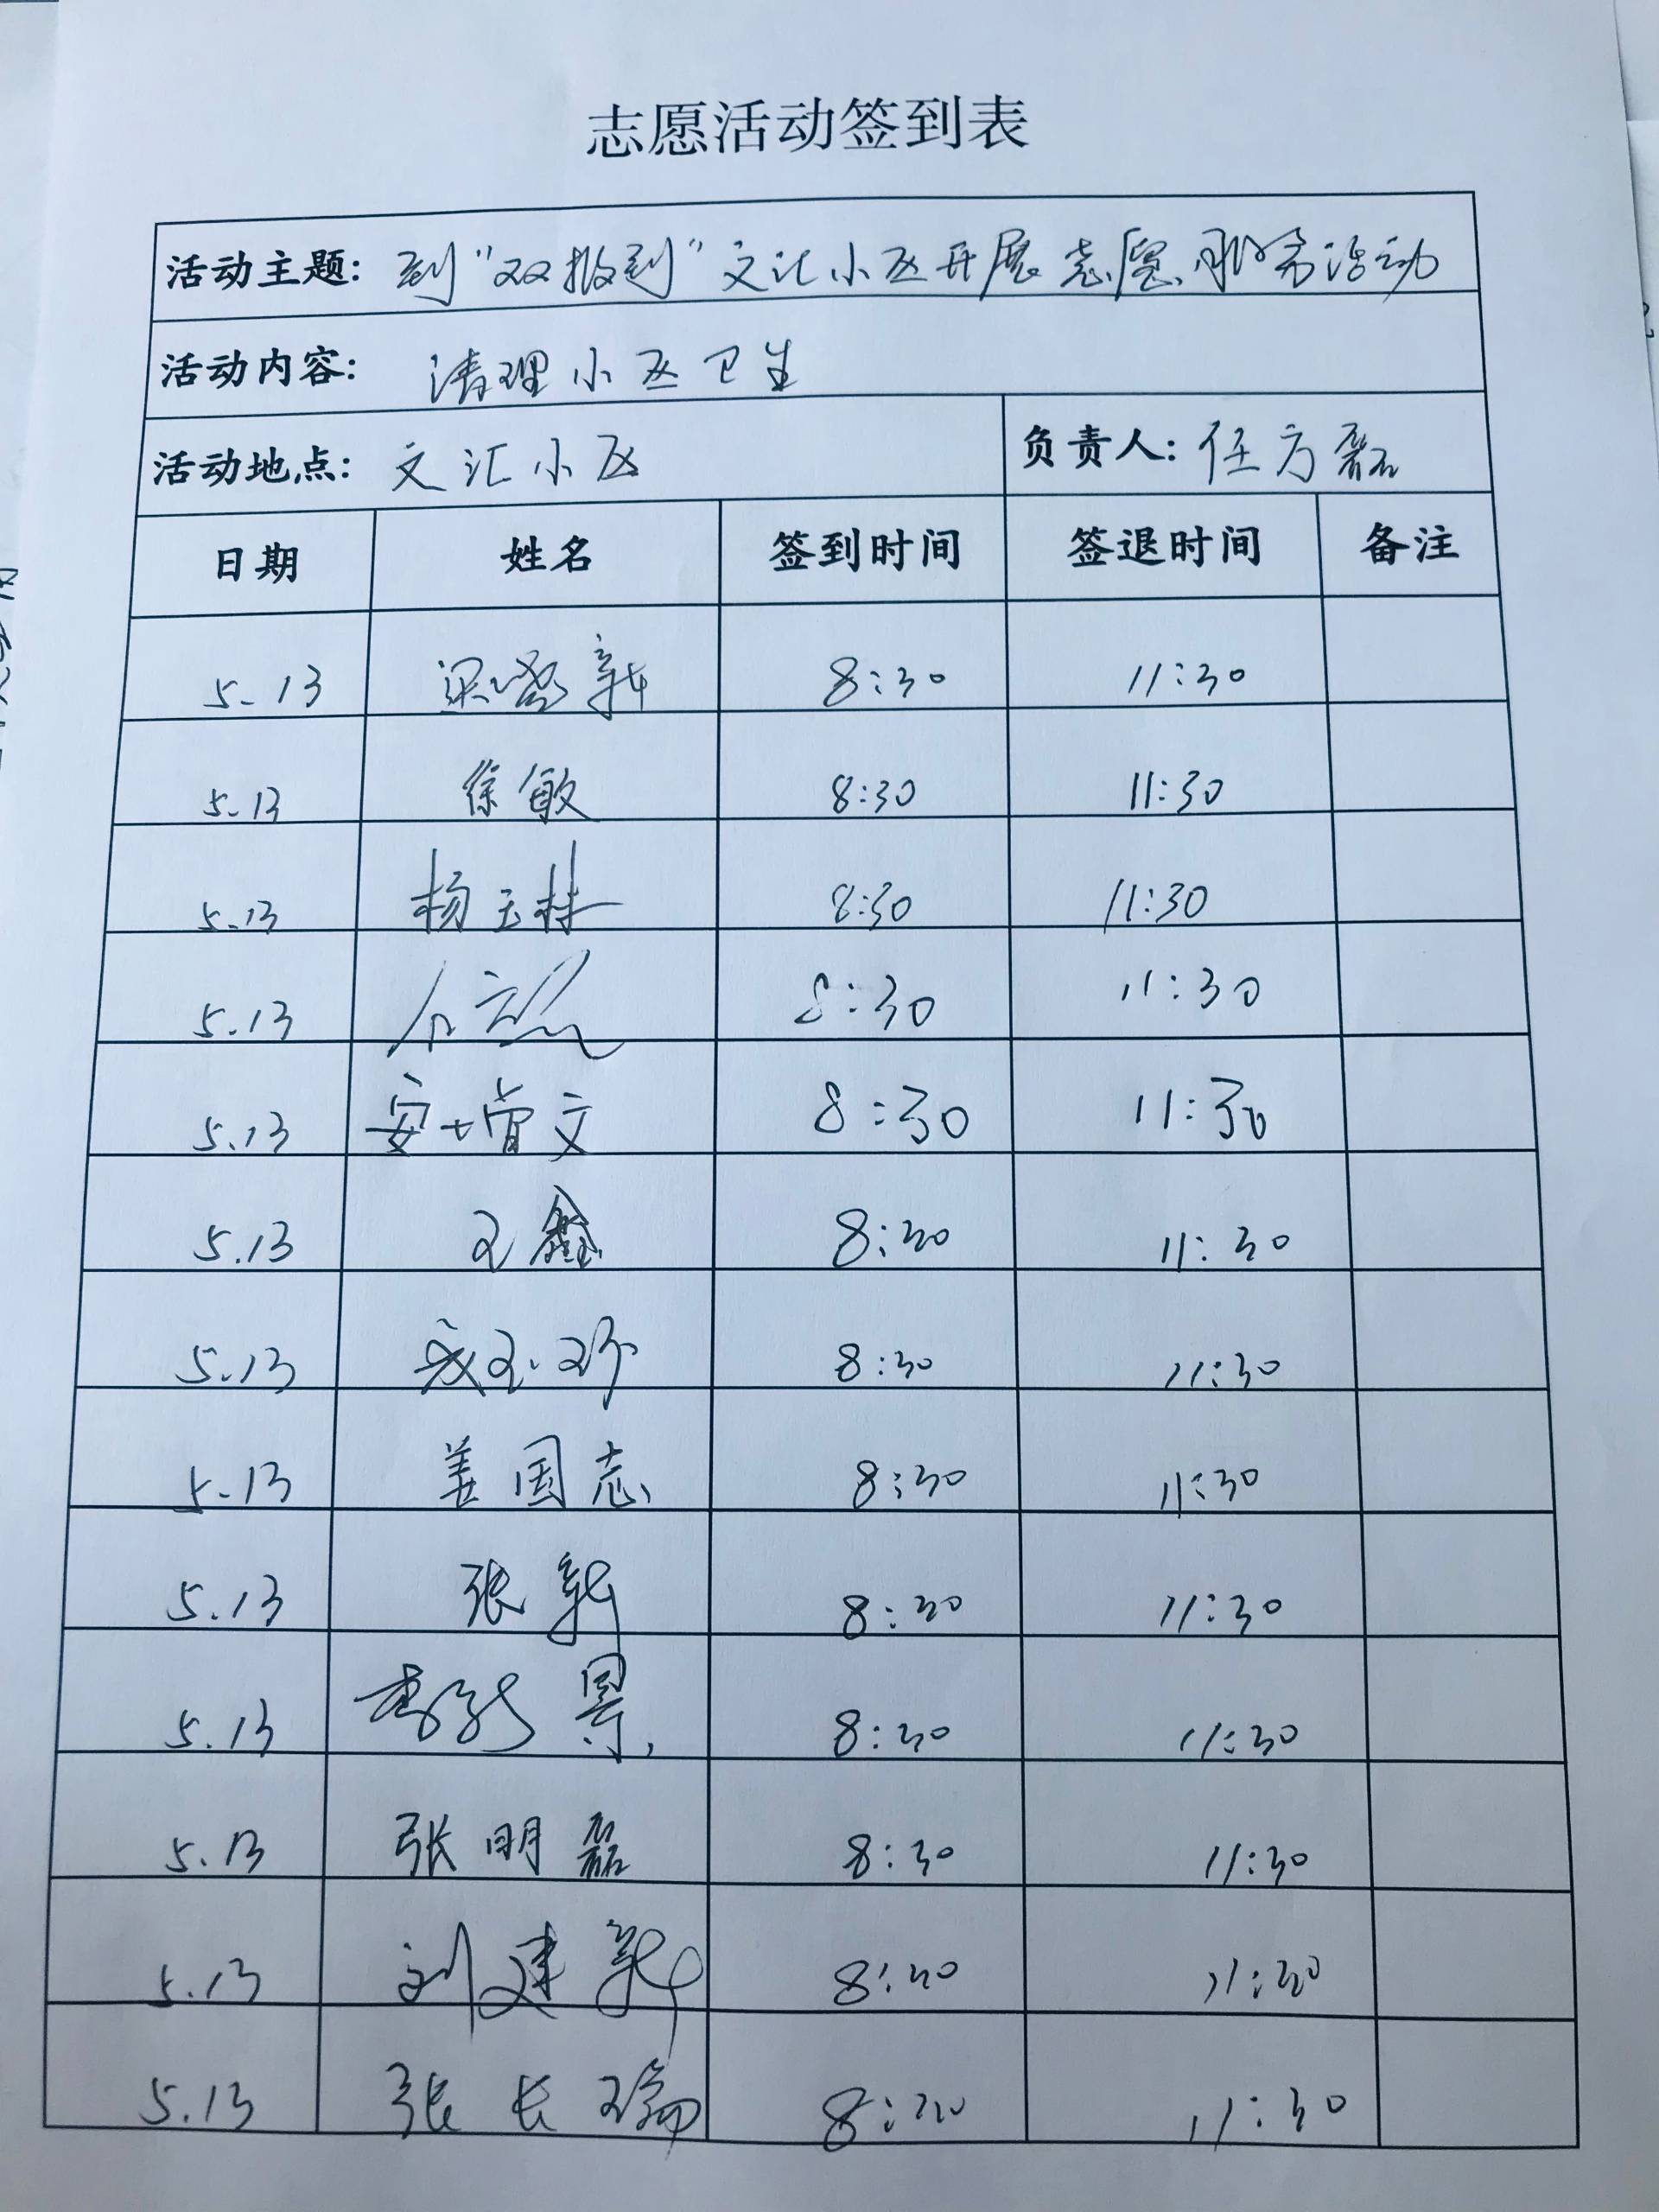 志愿活动签到表
活动主题: 到“双报到”文汇小区开展志愿服务活动
活动内容: 清理小区卫生
活动地点: 文汇小区 负责人: 任方磊
日期 姓名 签到时间 签退时间 备注
5.13 梁盛新 8:30 11:30
5.13 徐敏 8:30 11:30
5.13 杨玉林 8:30 11:30
5.13 8:30 11:30
5.13 安增文 8:30 11:30
5.13 王鑫 8:30 11:30
5.13 8:30 11:30
5.13 姜国志 8:30 11:30
5.13 张新 8:30 11:30
5.13 8:30 11:30
5.13 张明磊 8:30 11:30
5.13 刘建新 8:30 11:30
5.13 张长瑞 8:30 11:30